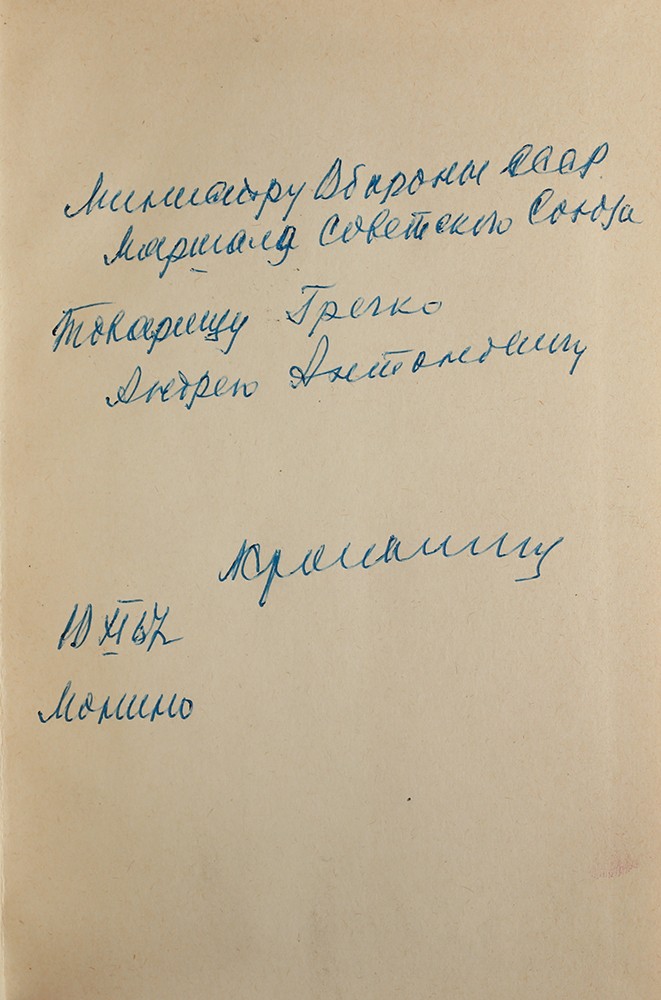 Министру Обороны СССР
Маршалу Советского Союза
Товарищу Гречко
Андрею Антоновичу
10 XI 67
Монино